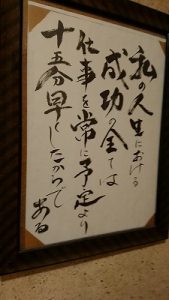 私の人生における
成功の全ては
仕事を常に予定より
十五分早くしたからで
ある